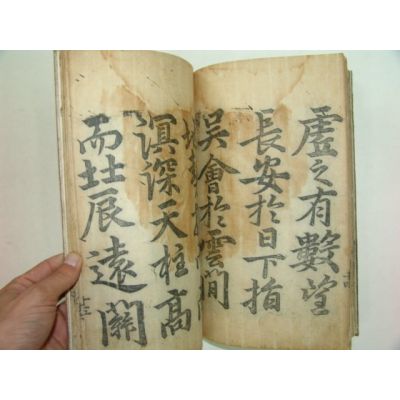 虛之有數望
長安於日下指
吳會於雲間
溟深天柱高
而北辰遠關